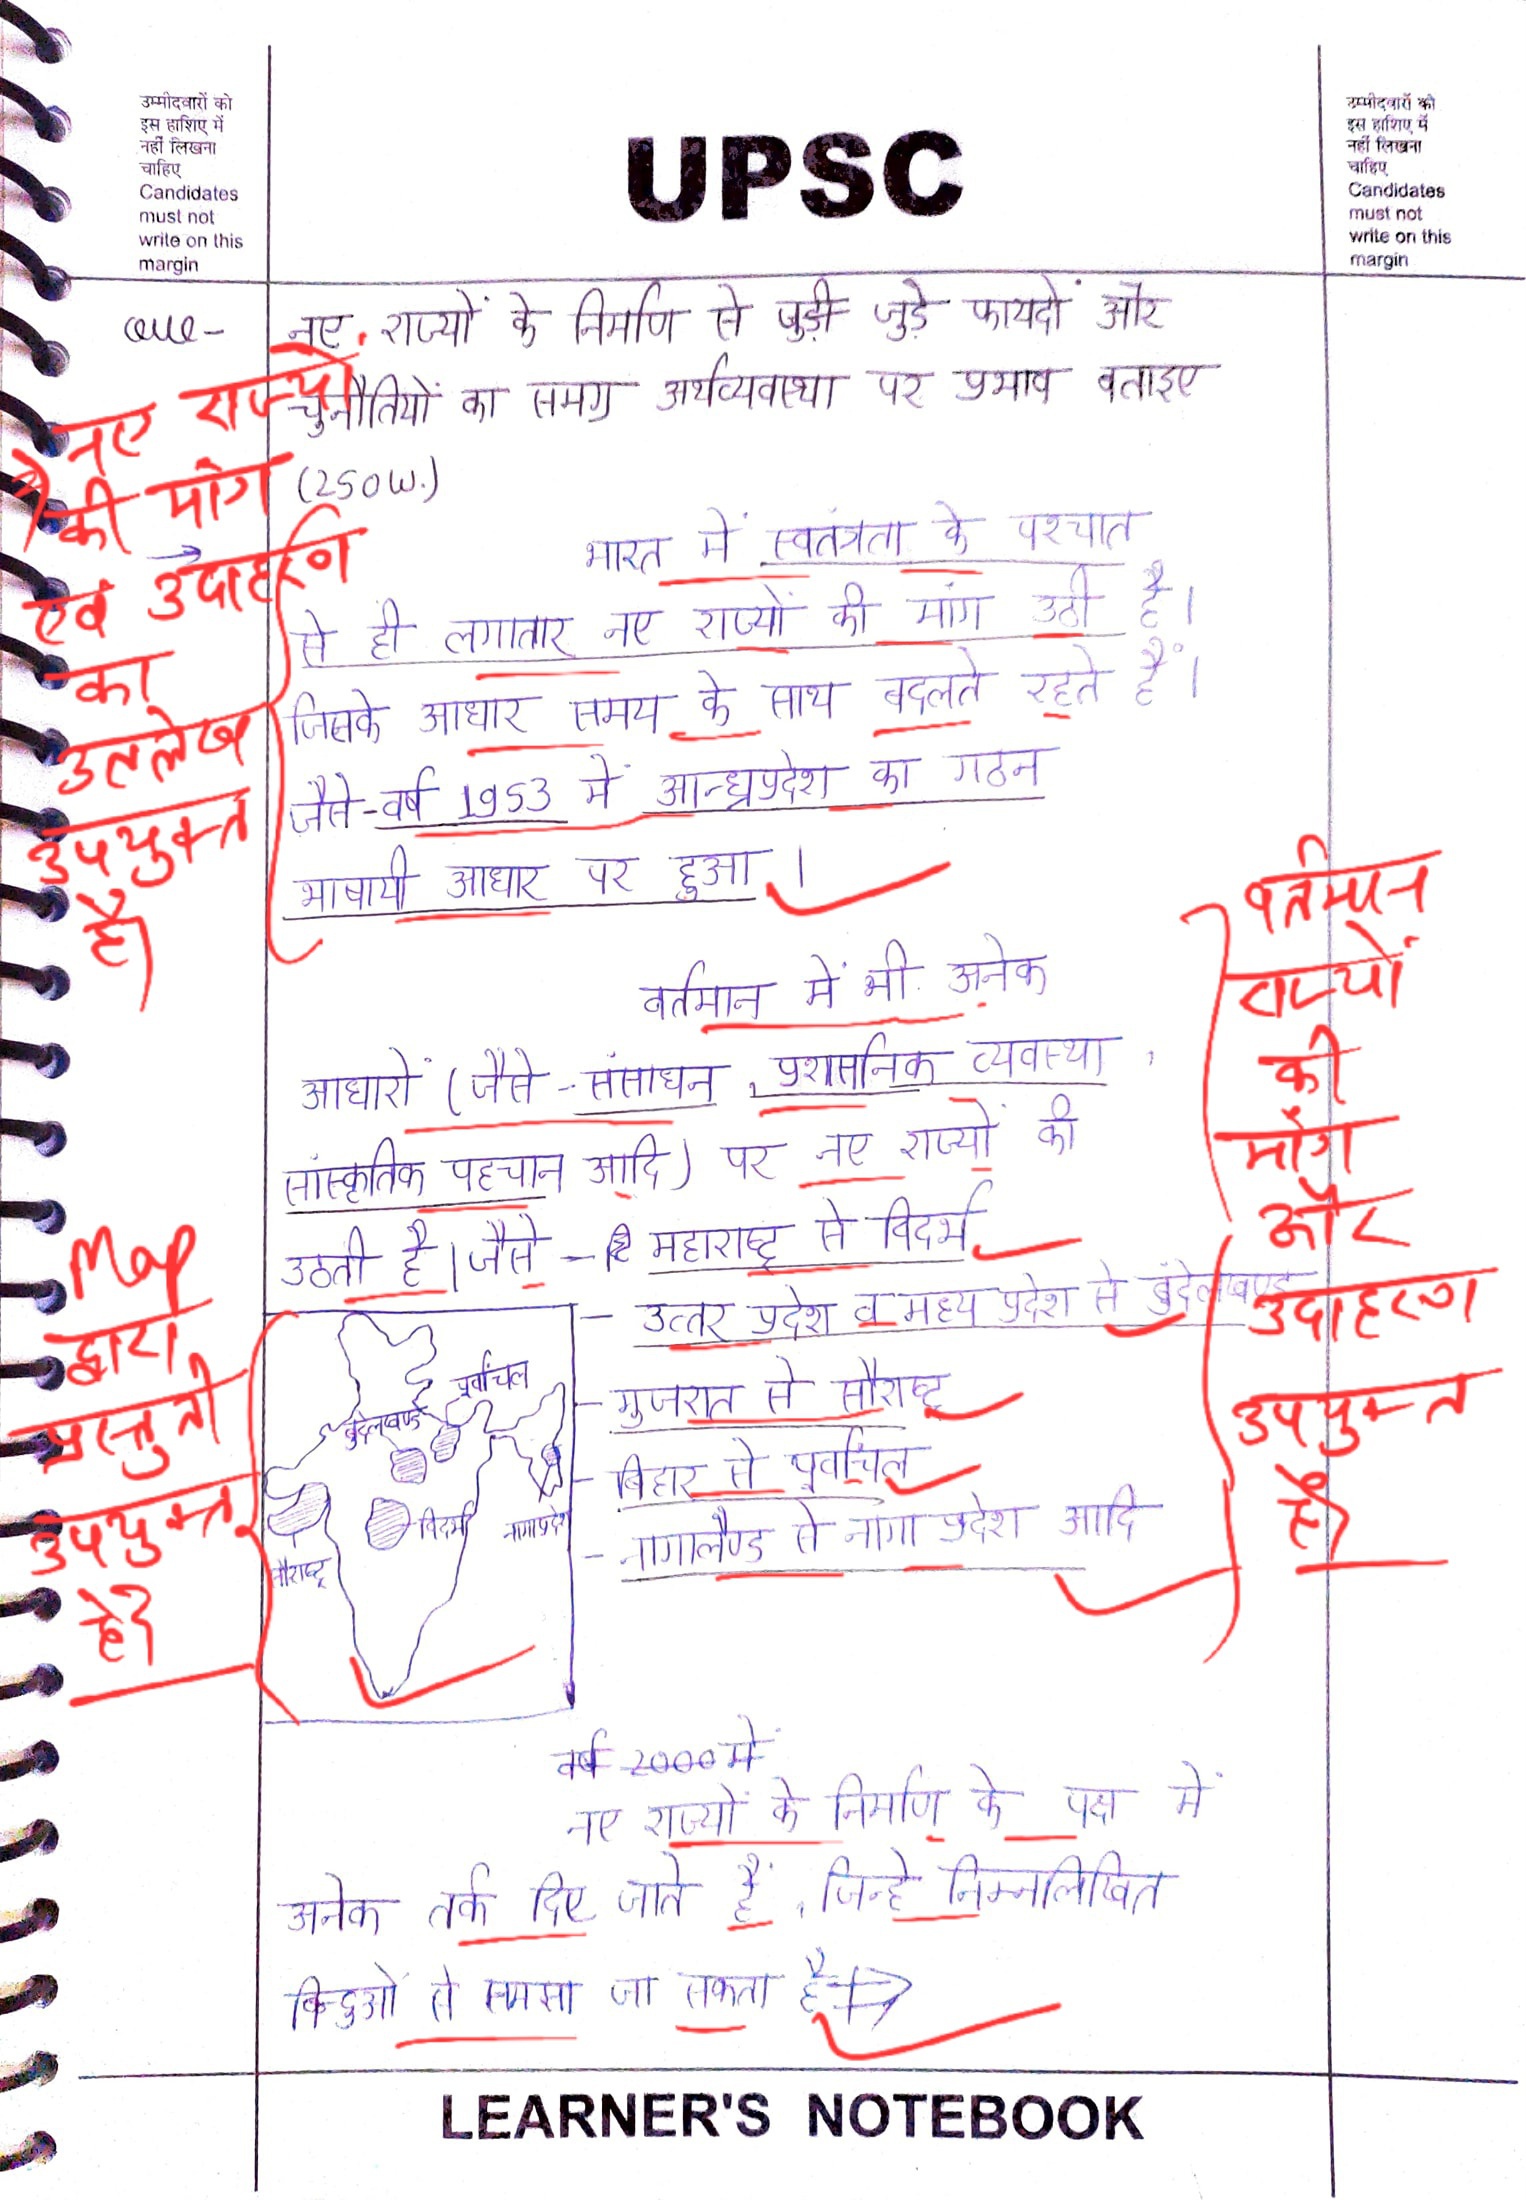 उम्मीदवारों को
इस हाशिए में
नहीं लिखना
चाहिए
Candidates
must not
write on this
margin
UPSC
उम्मीदवारों को
इस हाशिए में
नहीं लिखना
चाहिए
Candidates
must not
write on this
margin
que- नए राज्यों के निर्माण से जुड़ी जुड़े फायदों और
चुनौतियों का समग्र अर्थव्यवस्था पर प्रभाव बताइए
(250W.)
नए राज्यों
की मांग
एवं उदाहरण
का
उल्लेख
उपयुक्त
है।
भारत में स्वतंत्रता के पश्चात
से ही लगातार नए राज्यों की मांग उठी है।
जिसके आधार समय के साथ बदलते रहते हैं।
जैसे-वर्ष 1953 में आन्ध्रप्रदेश का गठन
भाषायी आधार पर हुआ।
वर्तमान में भी अनेक
आधारों (जैसे-संसाधन, प्रशासनिक व्यवस्था,
सांस्कृतिक पहचान आदि) पर नए राज्यों की
उठती है। जैसे - महाराष्ट्र से विदर्भ
- उत्तर प्रदेश व मध्य प्रदेश से बुंदेलखण्ड
- गुजरात से सौराष्ट्र
- बिहार से पूर्वांचल
- नागालैण्ड से नागा प्रदेश आदि
वर्तमान
राज्यों
की
मांग
और
उदाहरण
उपयुक्त
है।
Map
द्वारा
प्रस्तुती
उपयुक्त
है।
पूर्वांचल
बुंदेलखण्ड
विदर्भ
नागाप्रदेश
सौराष्ट्र
वर्ष 2000 में
नए राज्यों के निर्माण के पक्ष में
अनेक तर्क दिए जाते हैं, जिन्हे निम्नलिखित
बिन्दुओं से समझा जा सकता है⇒
LEARNER'S NOTEBOOK